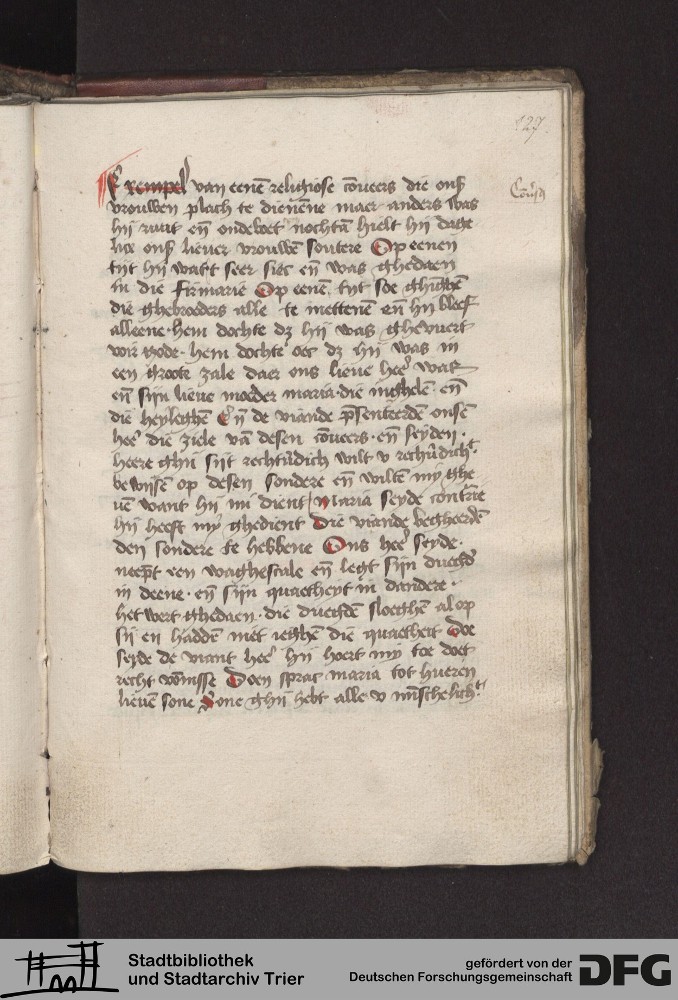 127
Exempel van eenē religiose cōuers die onß
vrouwen plach te dienēne maer anders was
hij ruut eñ ondeboet nochtā hielt hij dage
lix onß lieuer vrouwē soutere Op eenen
tijt hij wart seer siec eñ was ghedaen
in die firmarie Op eenē tijt soe ghīghē
die ghebroeders alle te mettenē eñ hij bleef
alleene · hem dochte dz hij was gheuuert
voir gode · hem dochte oec dz hij was in
een groote zale daer ons lieue heer̄ was
eñ sijn lieue moeder maria · die inghelē · eñ
die heyleghē Eñ de viande p̄senteerdē onsē
heer̄ die ziele vā desen cōuers · eñ seyden ·
heere ghij sijt rechtūdich wilt v rechūdich̾t
bewijsē op desen sondere eñ wiltē mij ghe
uē want hij mi dient / Maria seyde contrie
hij heeft mij ghedient Die viande begheerdē
den sondere te hebbene Ons heer̄ seyde ·
neep̄t een waghescale eñ legt sijn duechd̄
in deene · eñ sijn quaetheyt in dandere ·
het wert ghedaen · die duegdē sloeghē al op
sij en haddē niet ieghē die quaetheit Doe
seyde de viant heer̄ hij hoert mij toe doet
recht vōnisse Doen sprac maria tot hueren
lieuē sone Sone ghij hebt alle v mēschelich̾t
Stadtbibliothek
und Stadtarchiv Trier
gefördert von der
Deutschen Forschungsgemeinschaft
DFG